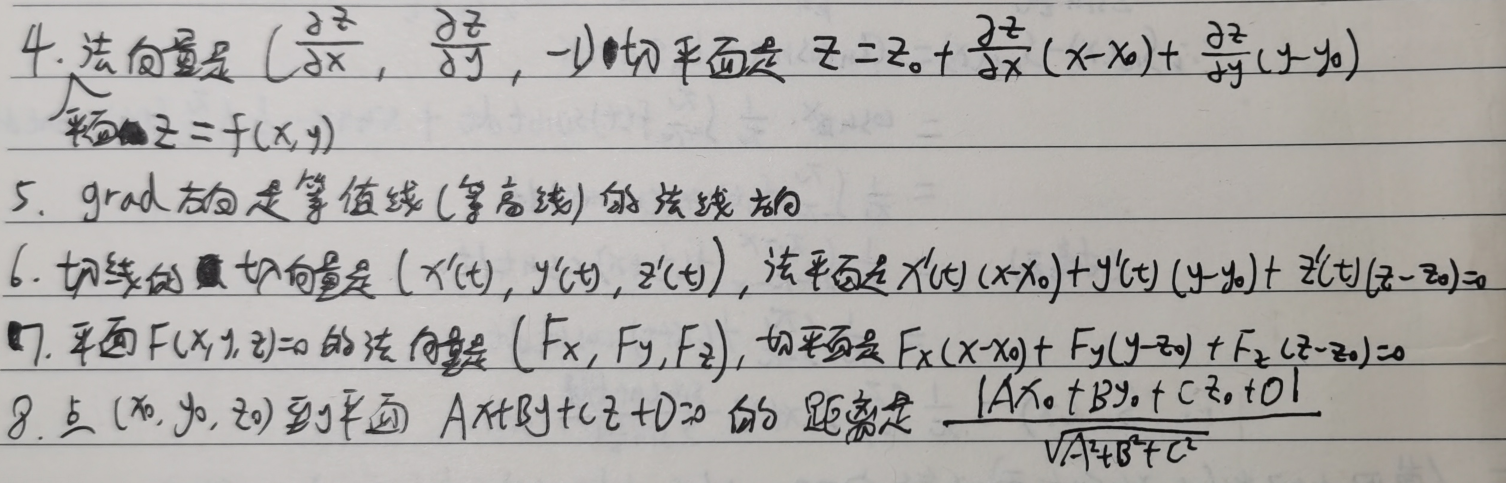 4. 法向量是 (∂z/∂x, ∂z/∂y, -1) 切平面是 z = z₀ + ∂z/∂x (x-x₀) + ∂z/∂y (y-y₀)
平面 z = f(x,y)
5. grad方向是等值线(等高线)的法线方向
6. 切线的切向量是 (x'(t), y'(t), z'(t)), 法平面是 x'(t) (x-x₀) + y'(t) (y-y₀) + z'(t) (z-z₀) = 0
7. 平面 F(x,y,z)=0 的法向量是 (Fx, Fy, Fz), 切平面是 Fx(x-x₀) + Fy(y-z₀) + Fz(z-z₀)=0
8. 点 (x₀, y₀, z₀) 到平面 Ax+By+Cz+D=0 的距离是 |Ax₀+By₀+Cz₀+D| / √A²+B²+C²